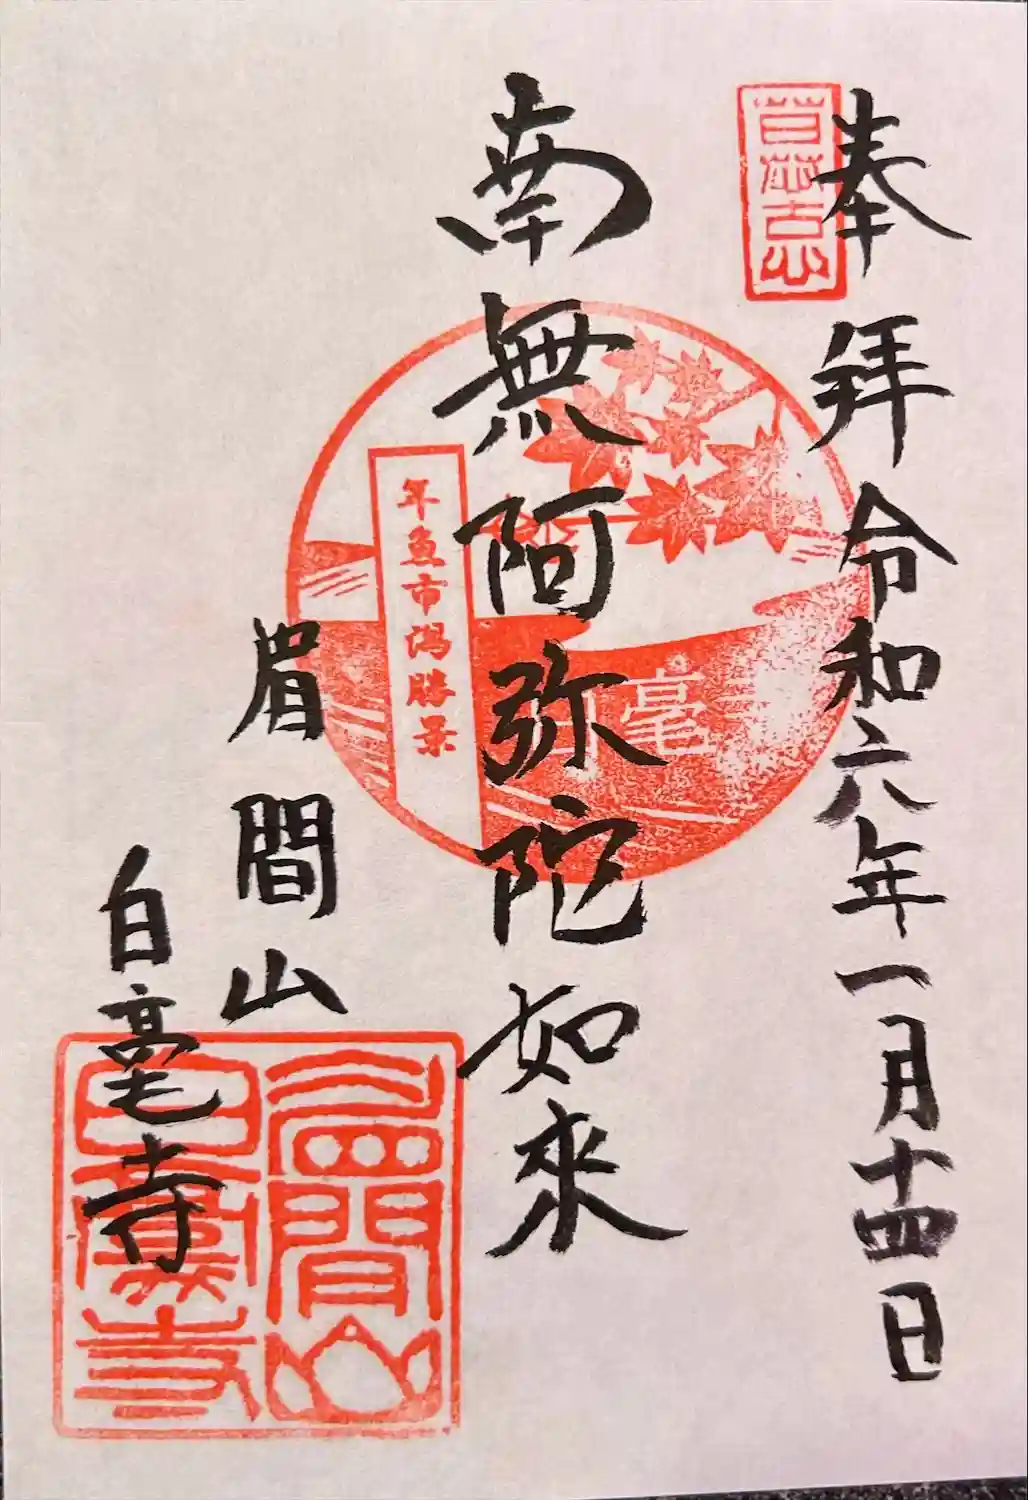 奉拜 令和六年一月十四日
南無阿弥陀如來
年魚市潟勝景
眉間山
白毫寺
眉間山
白毫寺